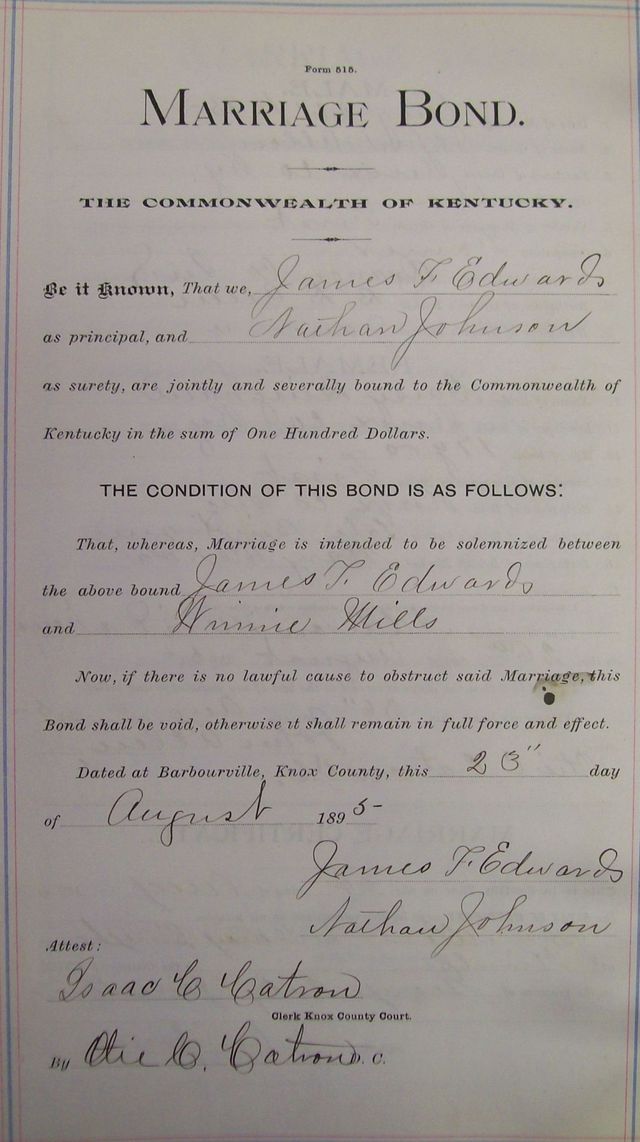 Form 515.
MARRIAGE BOND.
THE COMMONWEALTH OF KENTUCKY.
Be it Known, That we, James F Edwards
as principal, and Nathan Johnson
as surety, are jointly and severally bound to the Commonwealth of
Kentucky in the sum of One Hundred Dollars.
THE CONDITION OF THIS BOND IS AS FOLLOWS:
That, whereas, Marriage is intended to be solemnized between
the above bound James F. Edwards
and Winnie Mills
Now, if there is no lawful cause to obstruct said Marriage, this
Bond shall be void, otherwise it shall remain in full force and effect.
Dated at Barbourville, Knox County, this day
of August 1895
James F. Edwards
Nathan Johnson
Attest:
Isaac C Catron
Clerk Knox County Court.
By C. Catron D. C.